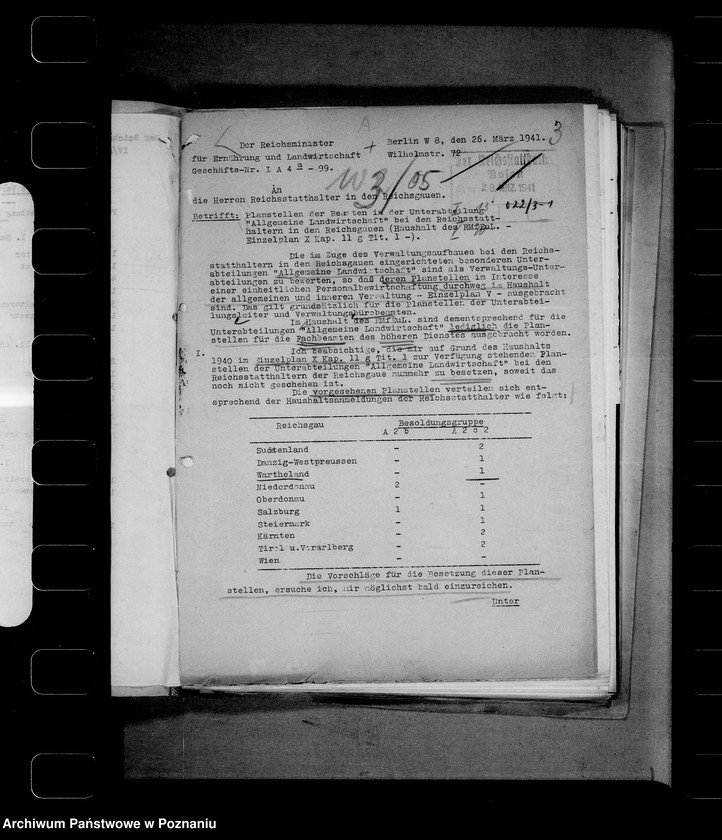 3
Der Reichsminister
für Ernährung und Landwirtschaft
Geschäfts-Nr. I A 4 a - 99.
Berlin W 8, den 26. März 1941.
Wilhelmstr. 72
Der Reichsstatthalter
Posen
28. MRZ. 1941
An
die Herren Reichsstatthalter in den Reichsgauen.
Betrifft: Planstellen der Beamten in der Unterabteilung
"Allgemeine Landwirtschaft" bei den Reichsstatt-
haltern in den Reichsgauen (Haushalt des RMfEuL. -
Einzelplan X Kap. 11 g Tit. 1 -).
Die im Zuge des Verwaltungsaufbaues bei den Reichs-
statthaltern in den Reichsgauen eingerichteten besonderen Unter-
abteilungen "Allgemeine Landwirtschaft" sind als Verwaltungs-Unter-
abteilungen zu bewerten, so daß deren Planstellen im Interesse
einer einheitlichen Personalbewirtschaftung durchweg im Haushalt
der allgemeinen und inneren Verwaltung - Einzelplan V - ausgebracht
sind. Das gilt grundsätzlich für die Planstellen der Unterabtei-
lungsleiter und Verwaltungsbürobeamten.
Im Haushalt des RMfEuL. sind dementsprechend für die
Unterabteilungen "Allgemeine Landwirtschaft" lediglich die Plan-
stellen für die Fachbeamten des höheren Dienstes ausgebracht worden.
I. Ich beabsichtige, die mir auf Grund des Haushalts
1940 im Einzelplan X Kap. 11 g Tit. 1 zur Verfügung stehenden Plan-
stellen der Unterabteilungen "Allgemeine Landwirtschaft" bei den
Reichsstatthaltern der Reichsgaue nunmehr zu besetzen, soweit das
noch nicht geschehen ist.
Die vorgesehenen Planstellen verteilen sich ent-
sprechend der Haushaltsanmeldungen der Reichsstatthalter wie folgt:
Reichsgau Besoldungsgruppe
A 2 b A 2 c 2
Sudetenland - 2
Danzig-Westpreussen - 1
Wartheland - 1
Niederdonau 2 -
Oberdonau - 1
Salzburg 1 1
Steiermark - 1
Kärnten - 2
Tirol u.Vorarlberg - 2
Wien - -
Die Vorschläge für die Besetzung dieser Plan-
stellen, ersuche ich, mir möglichst bald einzureichen.
Unter
Archiwum Państwowe w Poznaniu